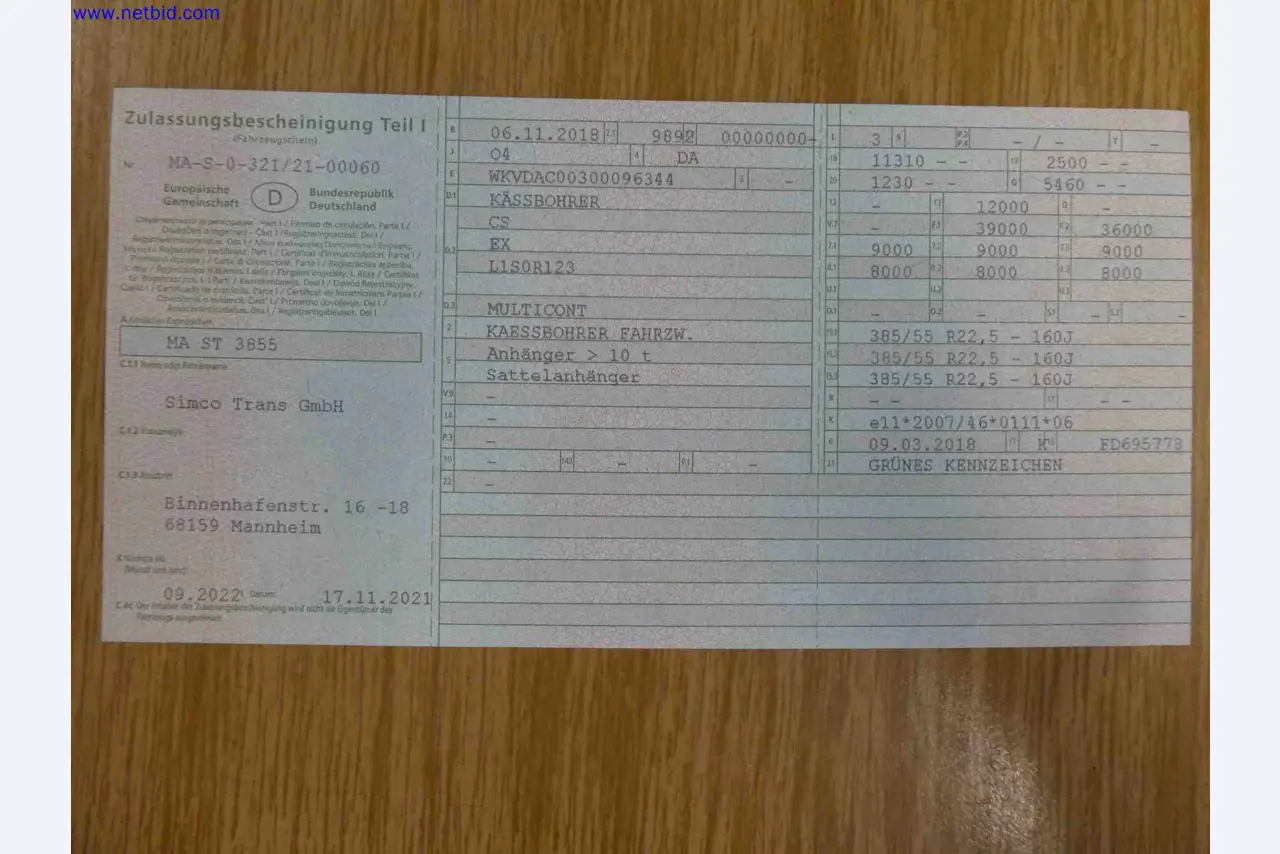 www.netbid.com
Zulassungsbescheinigung Teil I
(Fahrzeugschein)
Nr. MA-S-0-321/21-00060
Europäische Gemeinschaft
D
Bundesrepublik Deutschland
A Amtliches Kennzeichen
MA ST 3855
C.1.1 Name oder Firmenname
Simco Trans GmbH
C.1.2 Vorname(n)
C.1.3 Anschrift
Binnenhafenstr. 16 -18
68159 Mannheim
09.2022 Datum 17.11.2021
C.4c Der Inhaber der Zulassungsbescheinigung wird nicht als Eigentümer des
Fahrzeugs ausgewiesen.
B 06.11.2018 2.1 9892 00000000-
J O4 4 DA
E WKVDAC00300096344 3 -
D.1 KÄSSBOHRER
CS
D.2 EX
L1S0R123
D.3 MULTICONT
2 KAESSBOHRER FAHRZW.
5 Anhänger > 10 t
Sattelanhänger
V.9 -
14 -
P.3 -
10 - 14.1 - P.1 -
22 -
L 3 9 P.2 P.4 - / - T -
18 11310 - - 19 2500 - -
20 1230 - - G 5460 - -
12 - 13 12000 Q -
V.7 - F.1 39000 F.2 36000
7.1 9000 7.2 9000 7.3 9000
8.1 8000 8.2 8000 8.3 8000
U.1 U.2 U.3
O.1 - O.2 - S.1 - S.2 -
15.1 385/55 R22,5 - 160J
15.2 385/55 R22,5 - 160J
15.3 385/55 R22,5 - 160J
R - - 11 - -
K e11*2007/46*0111*06
6 09.03.2018 17 K 16 FD695778
21 GRÜNES KENNZEICHEN